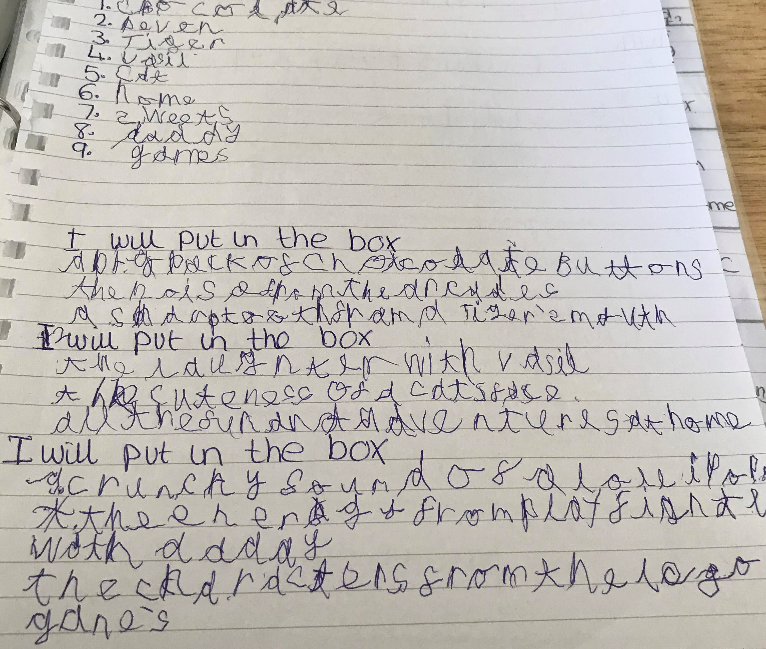 2. Deven
3. Tiger
4. Vasil
5. Cat
6. home
7. sweets
8. daddy
9. games
I will put in the box
a pack of chocolate Buttons
the noise from the arcades
a sharp tooth from a Tiger's mouth
I will put in the box
the laughter with Vasil
the cuteness of a cats face.
all the fun and adventures at home
I will put in the box
crunchy sound of a
the energy from play fight
with daddy
the characters from the lego
game's
me